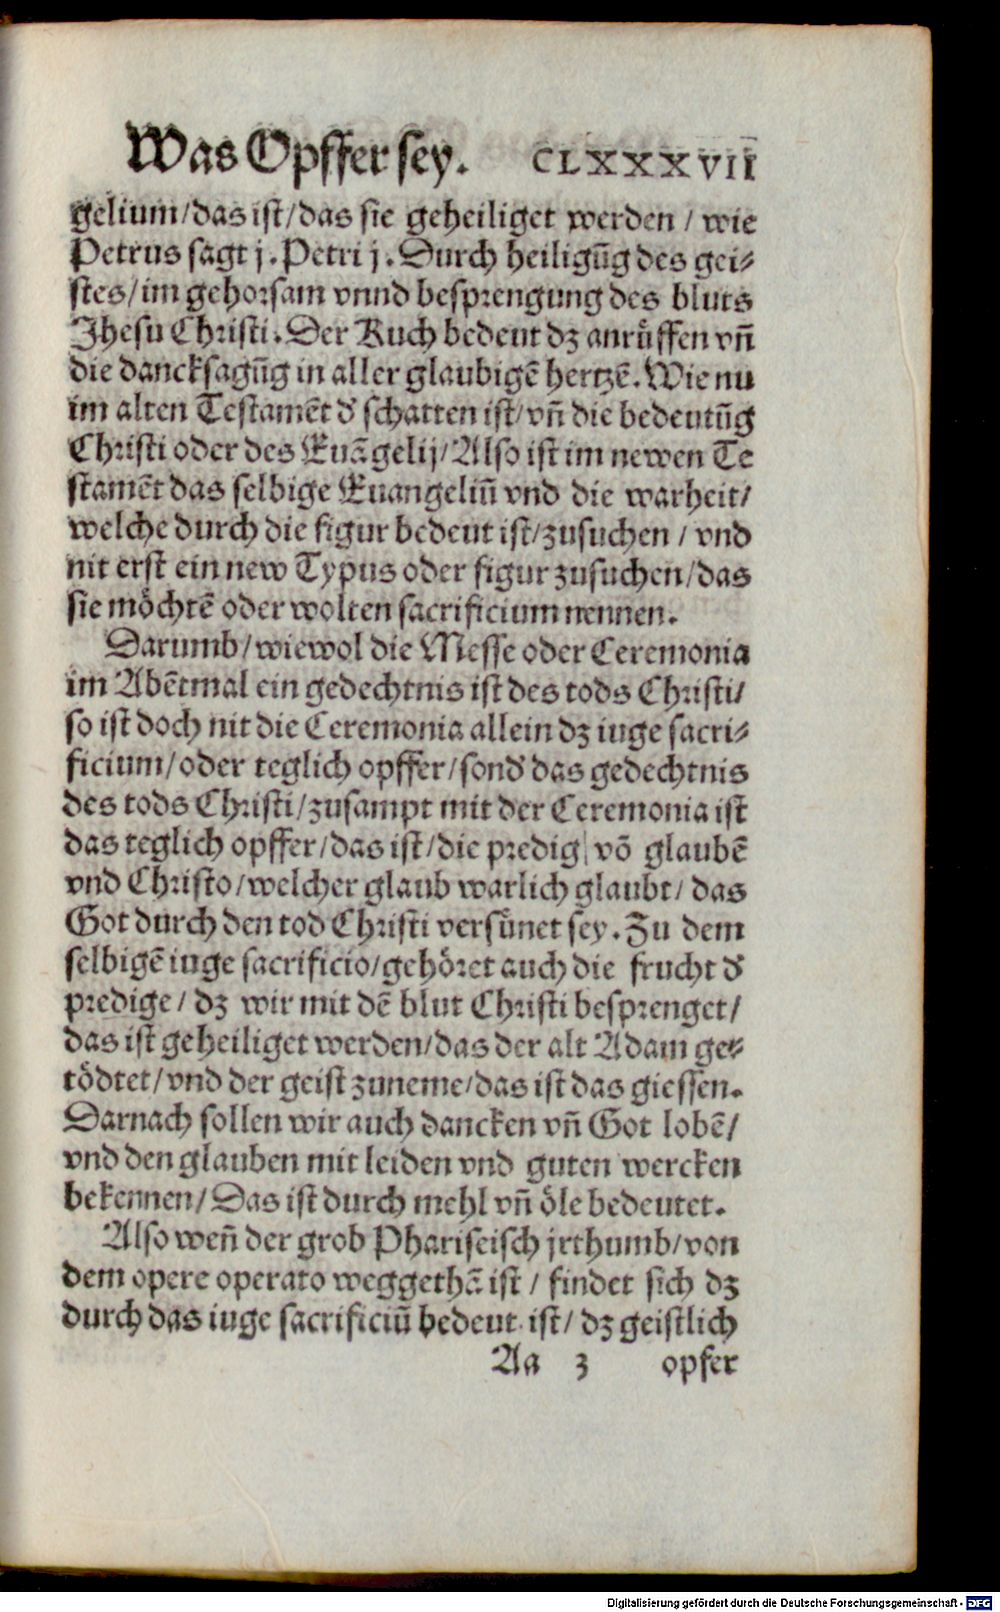 Was Opffer sey. CLXXXVII
gelium/das ist/das sie geheiliget werden / wie
Petrus sagt j. Petri j. Durch heiligūg des gei⸗
stes/im gehorsam vnnd besprengung des bluts
Jhesu Christi. Der Ruch bedeut dz anrüffen vñ
die dancksagūg in aller glaubigē hertzē. Wie nu
im alten Testamēt d̕ schatten ist/vñ die bedeutūg
Christi oder des Euāgelij/Also ist im newen Te
stamēt das selbige Euangeliū vnd die warheit/
welche durch die figur bedeut ist/zusuchen / vnd
nit erst ein new Typus oder figur zusuchen/das
sie möchtē oder wolten sacrificium nennen.
Darumb/wiewol die Messe oder Ceremonia
im Abētmal ein gedechtnis ist des tods Christi/
so ist doch nit die Ceremonia allein dz iuge sacri⸗
ficium/oder teglich opffer/sond̕ das gedechtnis
des tods Christi/zusampt mit der Ceremonia ist
das teglich opffer/das ist/die predig vō glaubē
vnd Christo/welcher glaub warlich glaubt/ das
Got durch den tod Christi versünet sey. Zu dem
selbigē iuge sacrificio/gehöret auch die frucht d̕
predige/ dz wir mit dē blut Christi besprenget/
das ist geheiliget werden/das der alt Adam ge⸗
tödtet/vnd der geist zuneme/das ist das giessen.
Darnach sollen wir auch dancken vñ Got lobē/
vnd den glauben mit leiden vnd guten wercken
bekennen/Das ist durch mehl vñ öle bedeutet.
Also weñ der grob Phariseisch jrthumb/von
dem opere operato weggethā ist / findet sich dz
durch das iuge sacrificiū bedeut ist/ dz geistlich
Aa 3 opfer
Digitalisierung gefördert durch die Deutsche Forschungsgemeinschaft - DFG